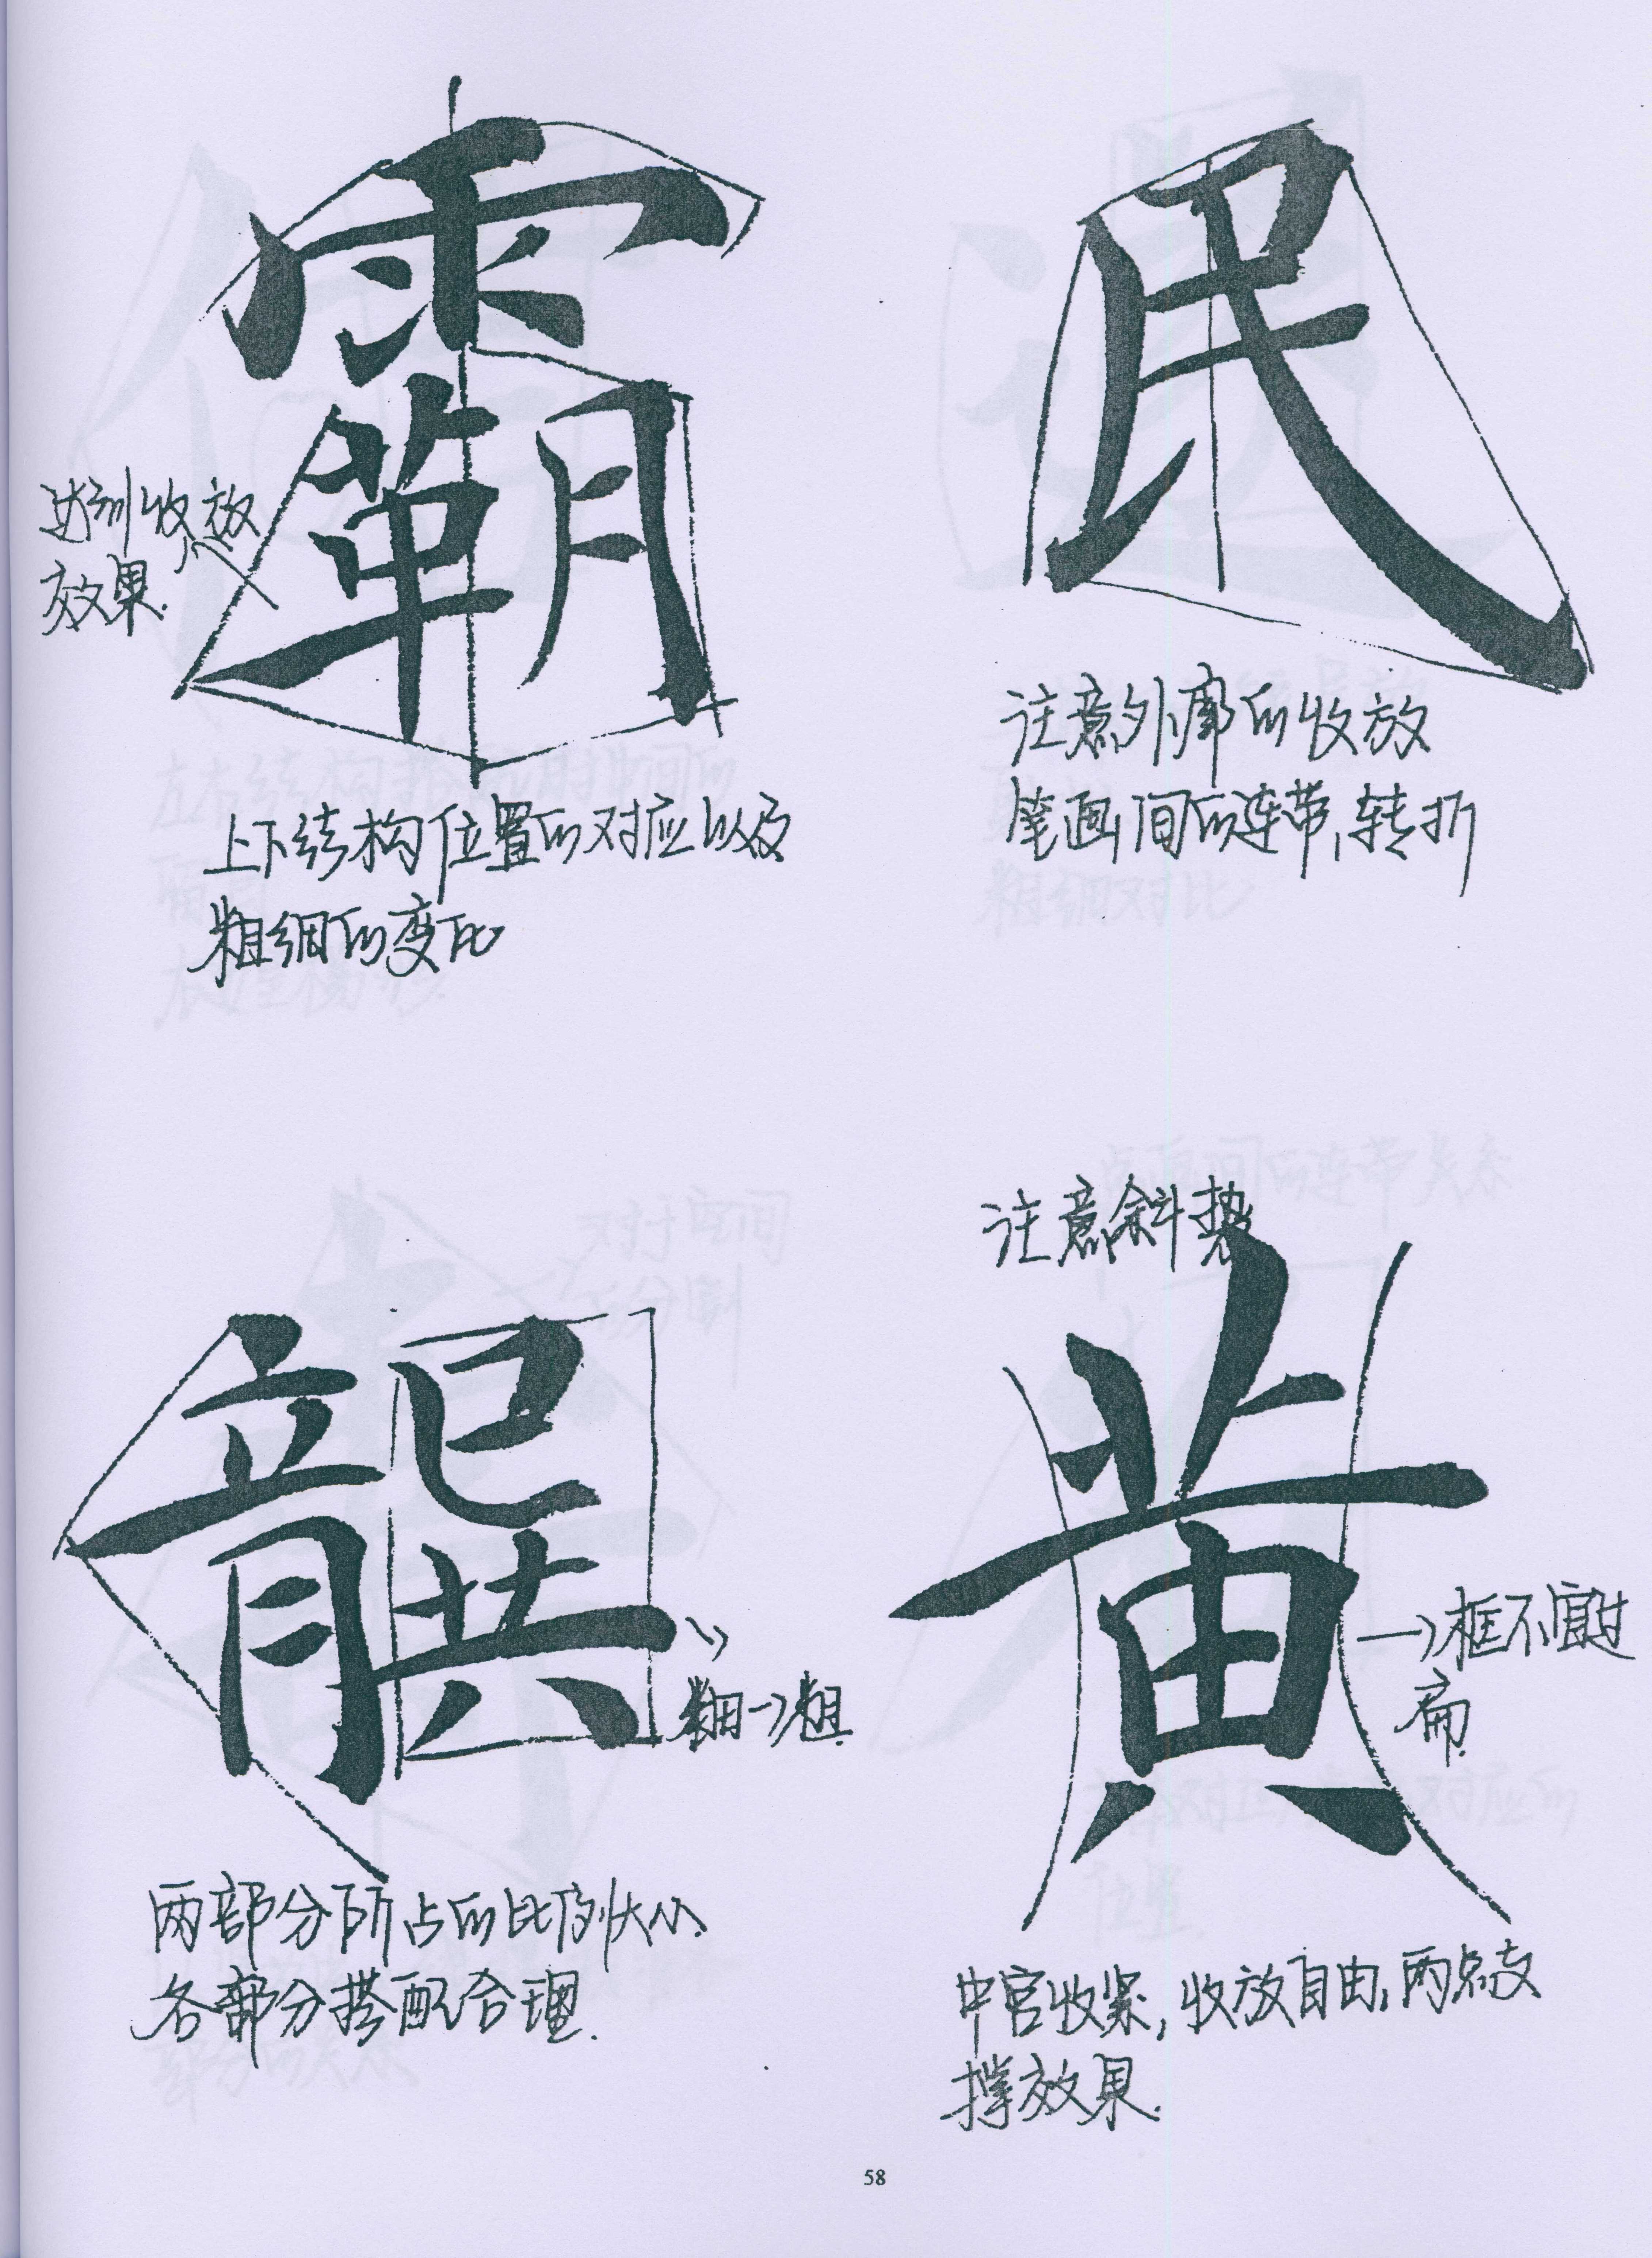 霸
达到收放
效果.
上下结构位置的对应以及
粗细的变化
民
注意外廓的收放
笔画间的连带,转折
龔
细→粗.
两部分所占的比例大小.
各部分搭配合理.
注意斜势
黄
→框不宜过
扁.
中宫收紧,收放自由,两点支
撑效果.
58